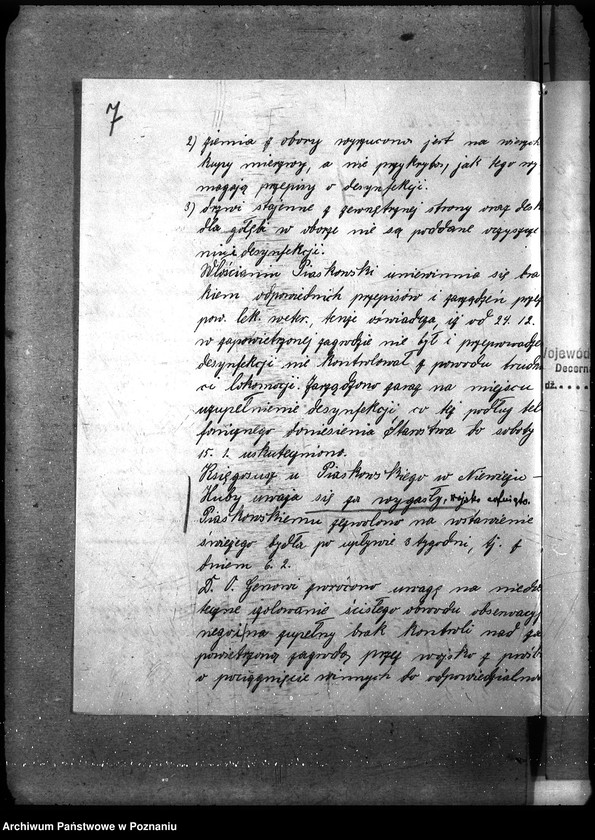 7
2) ziemia z obory wyrzucona jest na wierzch
kupy mierzwy, a nie przykryta, jak tego wy
magają przepisy o desynfekcji.
3) drzwi stajenne z zewnętrznej strony oraz desk
dla gołębi w oborze nie są poddane oczyszcze
niu i desynfekcji.
Włościanin Piaskowski uniewinnia się bra
kiem odpowiednich przepisów i zarządzeń przez
pow. lek. wetr., tenże oświadcza, iż od 24. 12.
w zapowietrzonej zagrodzie nie był i przeprowadze
desynfekcji nie kontrolował z powodu trudno
ści lokomocji. Zarządzono zaraz na miejscu
uzupełnienie desynfekcji co też podług tel
fonicznego doniesienia Starostwa do soboty
15. 1. uskuteczniono.
Księgosusz u Piaskowskiego w Niemieju -
Huby uważa się za wygasły, wojsko cofnięto.
Piaskowskiemu zezwolono na wstawienie
świeżego bydła po upływie 3 tygodni, tj. z
dniem 6. 2.
D. O. Genowi zwrócono uwagę na niedos
teczne izolowanie ścisłego obwodu obserwacyj
nego i na zupełny brak kontroli nad za
powietrzoną zagrodą przez wojsko z prośb
o pociągnięcie winnych do odpowiedzialno
Wojewód
Decern
dż.
Archiwum Państwowe w Poznaniu